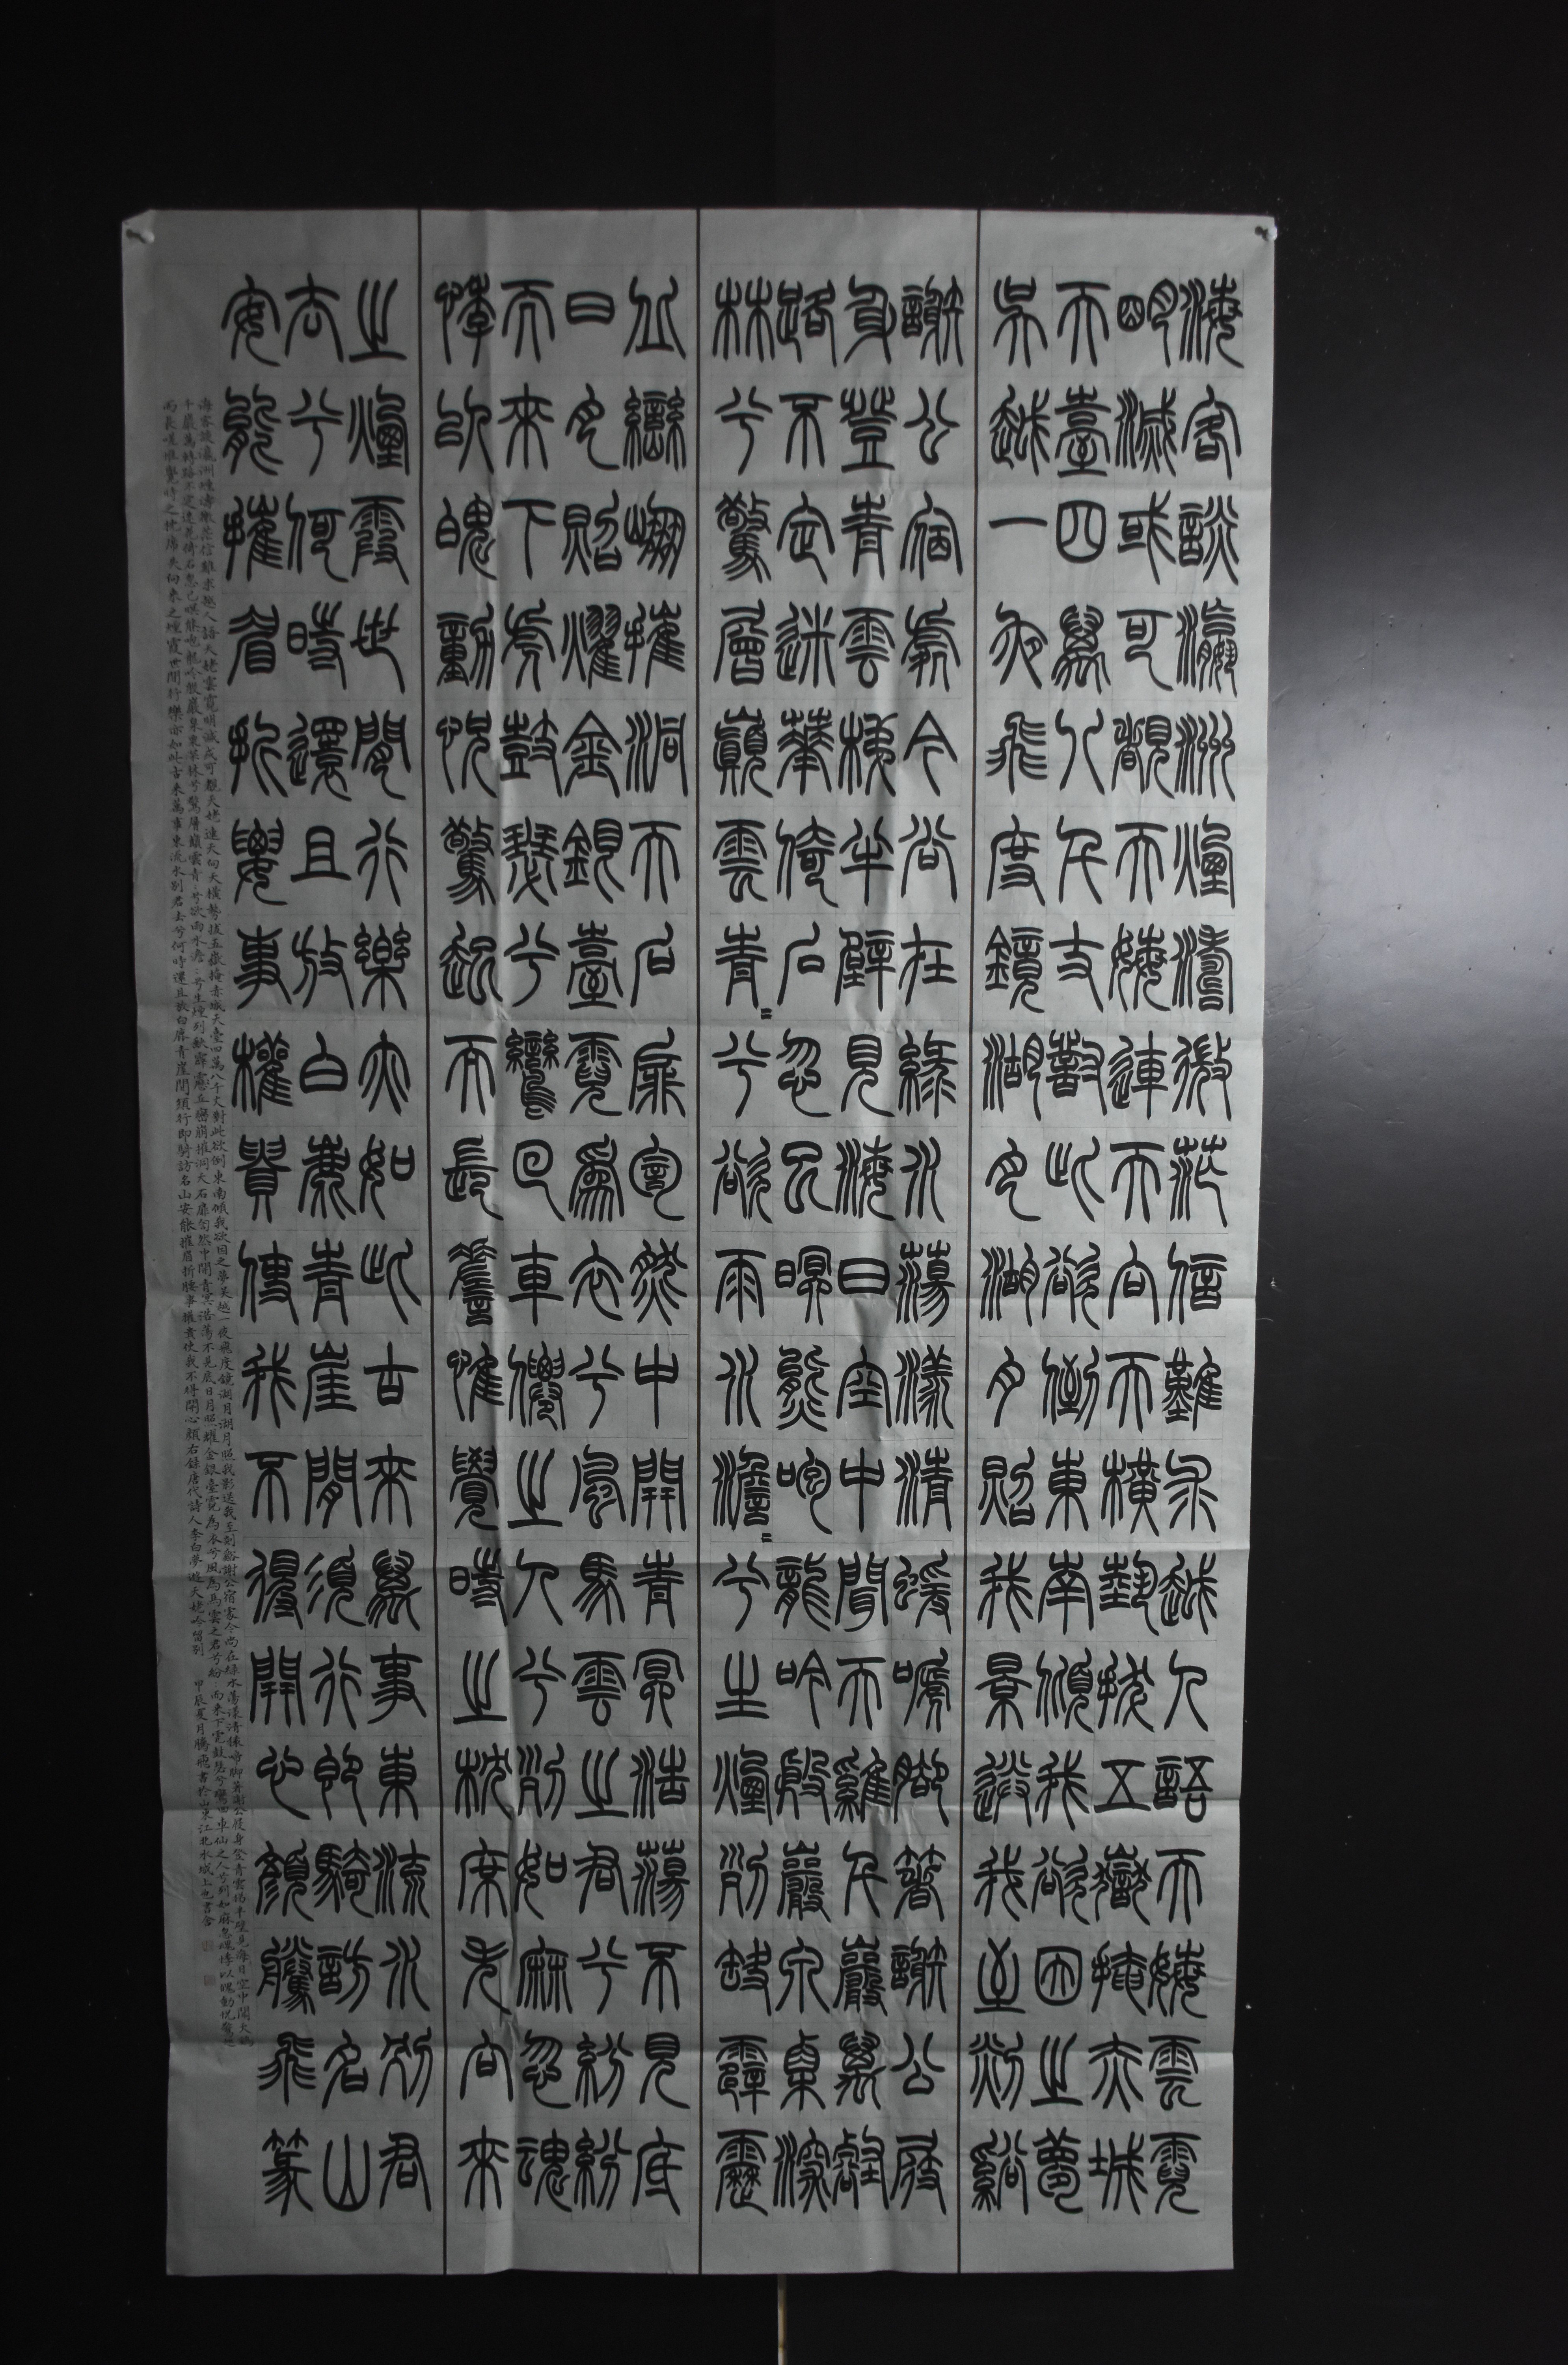 海客談瀛洲煙濤微茫信難求越人語天姥雲霓
明滅或可覩天姥連天向天橫勢拔五嶽掩赤城
天臺四萬八千丈對此欲倒東南傾我欲因之夢
吳越一夜飛度鏡湖月湖月照我景送我至剡谿
謝公宿處今尚在綠水蕩漾清嗁腳箸謝公屐
身登青雲梯半壁見海日空中聞天雞千巖萬
路不定迷華倚石忽已暝熊咆龍吟殷巖泉㮚深
林兮驚層巔雲青=兮欲雨水澹=兮生煙列缺霹靂
丘巒崩摧洞天石扉訇然中開青冥浩蕩不見底
日月照燿金銀臺霓爲衣兮風馬雲之君兮紛紛
而來下虎鼓瑟兮鸞回車僊之人兮列如麻忽魂
悸以魄動怳驚起而長嗟惟覺時之枕席失向來
之煙霞世間行樂亦如此古來萬事東流水別君
去兮何時還且放白鹿青崖間須行即騎訪名山
安能摧眉折腰事權貴使我不得開心顏騰飛篆
海客談瀛洲煙濤微茫信難求越人語天姥雲霓明滅或可覩天姥連天向天橫勢拔五嶽掩赤城天臺四萬八千丈對此欲倒東南傾我欲因之夢吳越一夜飛度鏡湖月湖月照我影送我至剡谿謝公宿處今尚在綠水蕩漾清猿啼脚著謝公屐身登青雲梯半壁見海日空中聞天鷄
千巖萬轉路不定迷花倚石忽已暝熊咆龍吟殷巖泉栗深林兮驚層巔雲青=兮欲雨水澹=兮生煙列缺霹靂丘巒崩摧洞天石扉訇然中開青冥浩蕩不見底日月照耀金銀臺霓為衣兮風為馬雲之君兮紛=而來下虎鼓瑟兮鸞回車仙之人兮列如麻忽魂悸以魄動怳驚起
而長嗟惟覺時之枕席失向來之煙霞世間行樂亦如此古來萬事東流水別君去兮何時還且放白鹿青崖間須行即騎訪名山安能摧眉折腰事權貴使我不得開心顏右錄唐代詩人李白夢遊天姥吟留別 甲辰夏月騰飛書於山東江北水城上也書舍